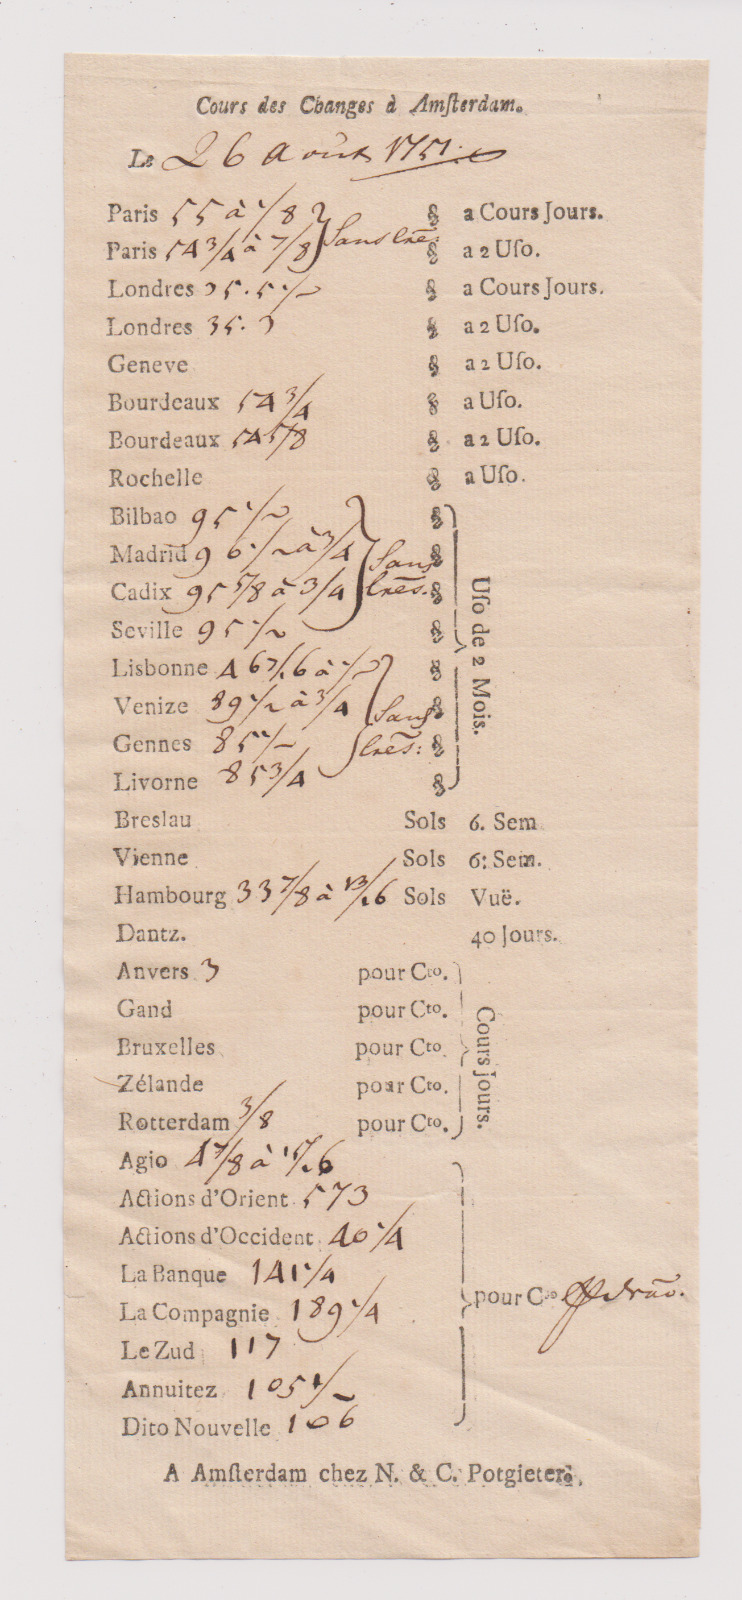 Cours des Changes à Amſterdam.
Le 26 Août 1751.
Paris 55 à 1/8 ⁊ a Cours Jours.
Paris 54 3/4 à 7/8 Sans lrēs: a 2 Uſo.
Londres 35.5 1/2 a Cours Jours.
Londres 35.3 a 2 Uſo.
Geneve a 2 Uſo.
Bourdeaux 54 3/4 a Uſo.
Bourdeaux 54 5/8 a 2 Uſo.
Rochelle a Uſo.
Bilbao 95 1/2
Madrid 96 1/2 à 3/4 Sans
Cadix 95 5/8 à 3/4 lrēs.
Seville 95 1/2
Uſo de 2 Mois.
Lisbonne 46 7/16 à 1/2
Venize 89 1/2 à 3/4 Sans
Gennes 85 1/2 lrēs:
Livorne 85 3/4
Breslau Sols 6. Sem
Vienne Sols 6: Sem.
Hambourg 33 7/8 à 13/16 Sols Vuë.
Dantz. 40 Jours.
Anvers 3 pour Cto.
Gand pour Cto.
Bruxelles pour Cto.
Zélande pour Cto.
Rotterdam 3/8 pour Cto.
Cours Jours.
Agio 4 7/8 à 15/16
Actions d'Orient 573
Actions d'Occident 40 1/4
La Banque 141 1/4
La Compagnie 189 1/4 pour Cto
Le Zud 117
Annuitez 105 1/2
Dito Nouvelle 106
A Amſterdam chez N. & C. Potgieter.